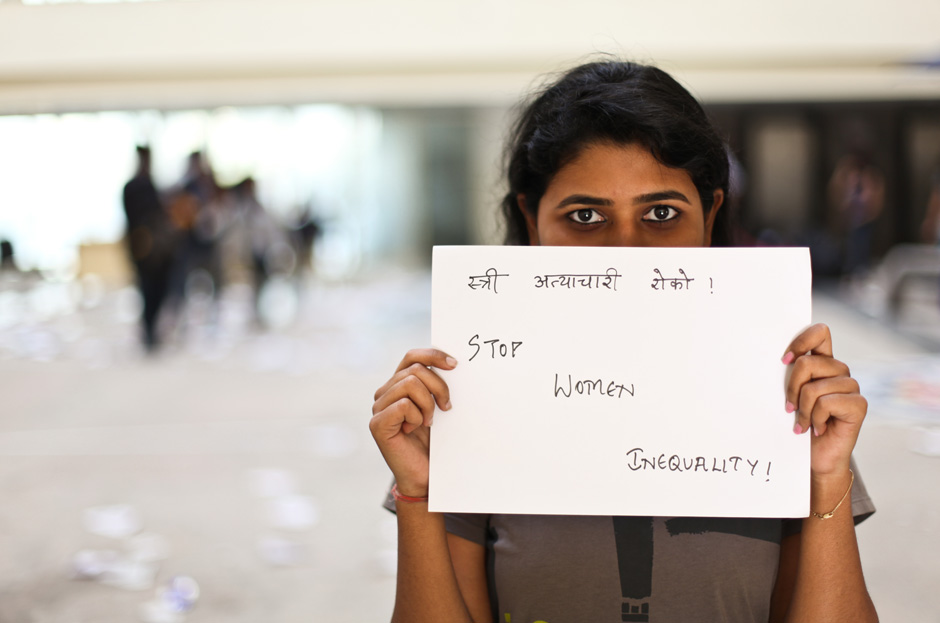 स्त्री अत्याचारी रोको !
STOP
WOMEN
INEQUALITY!